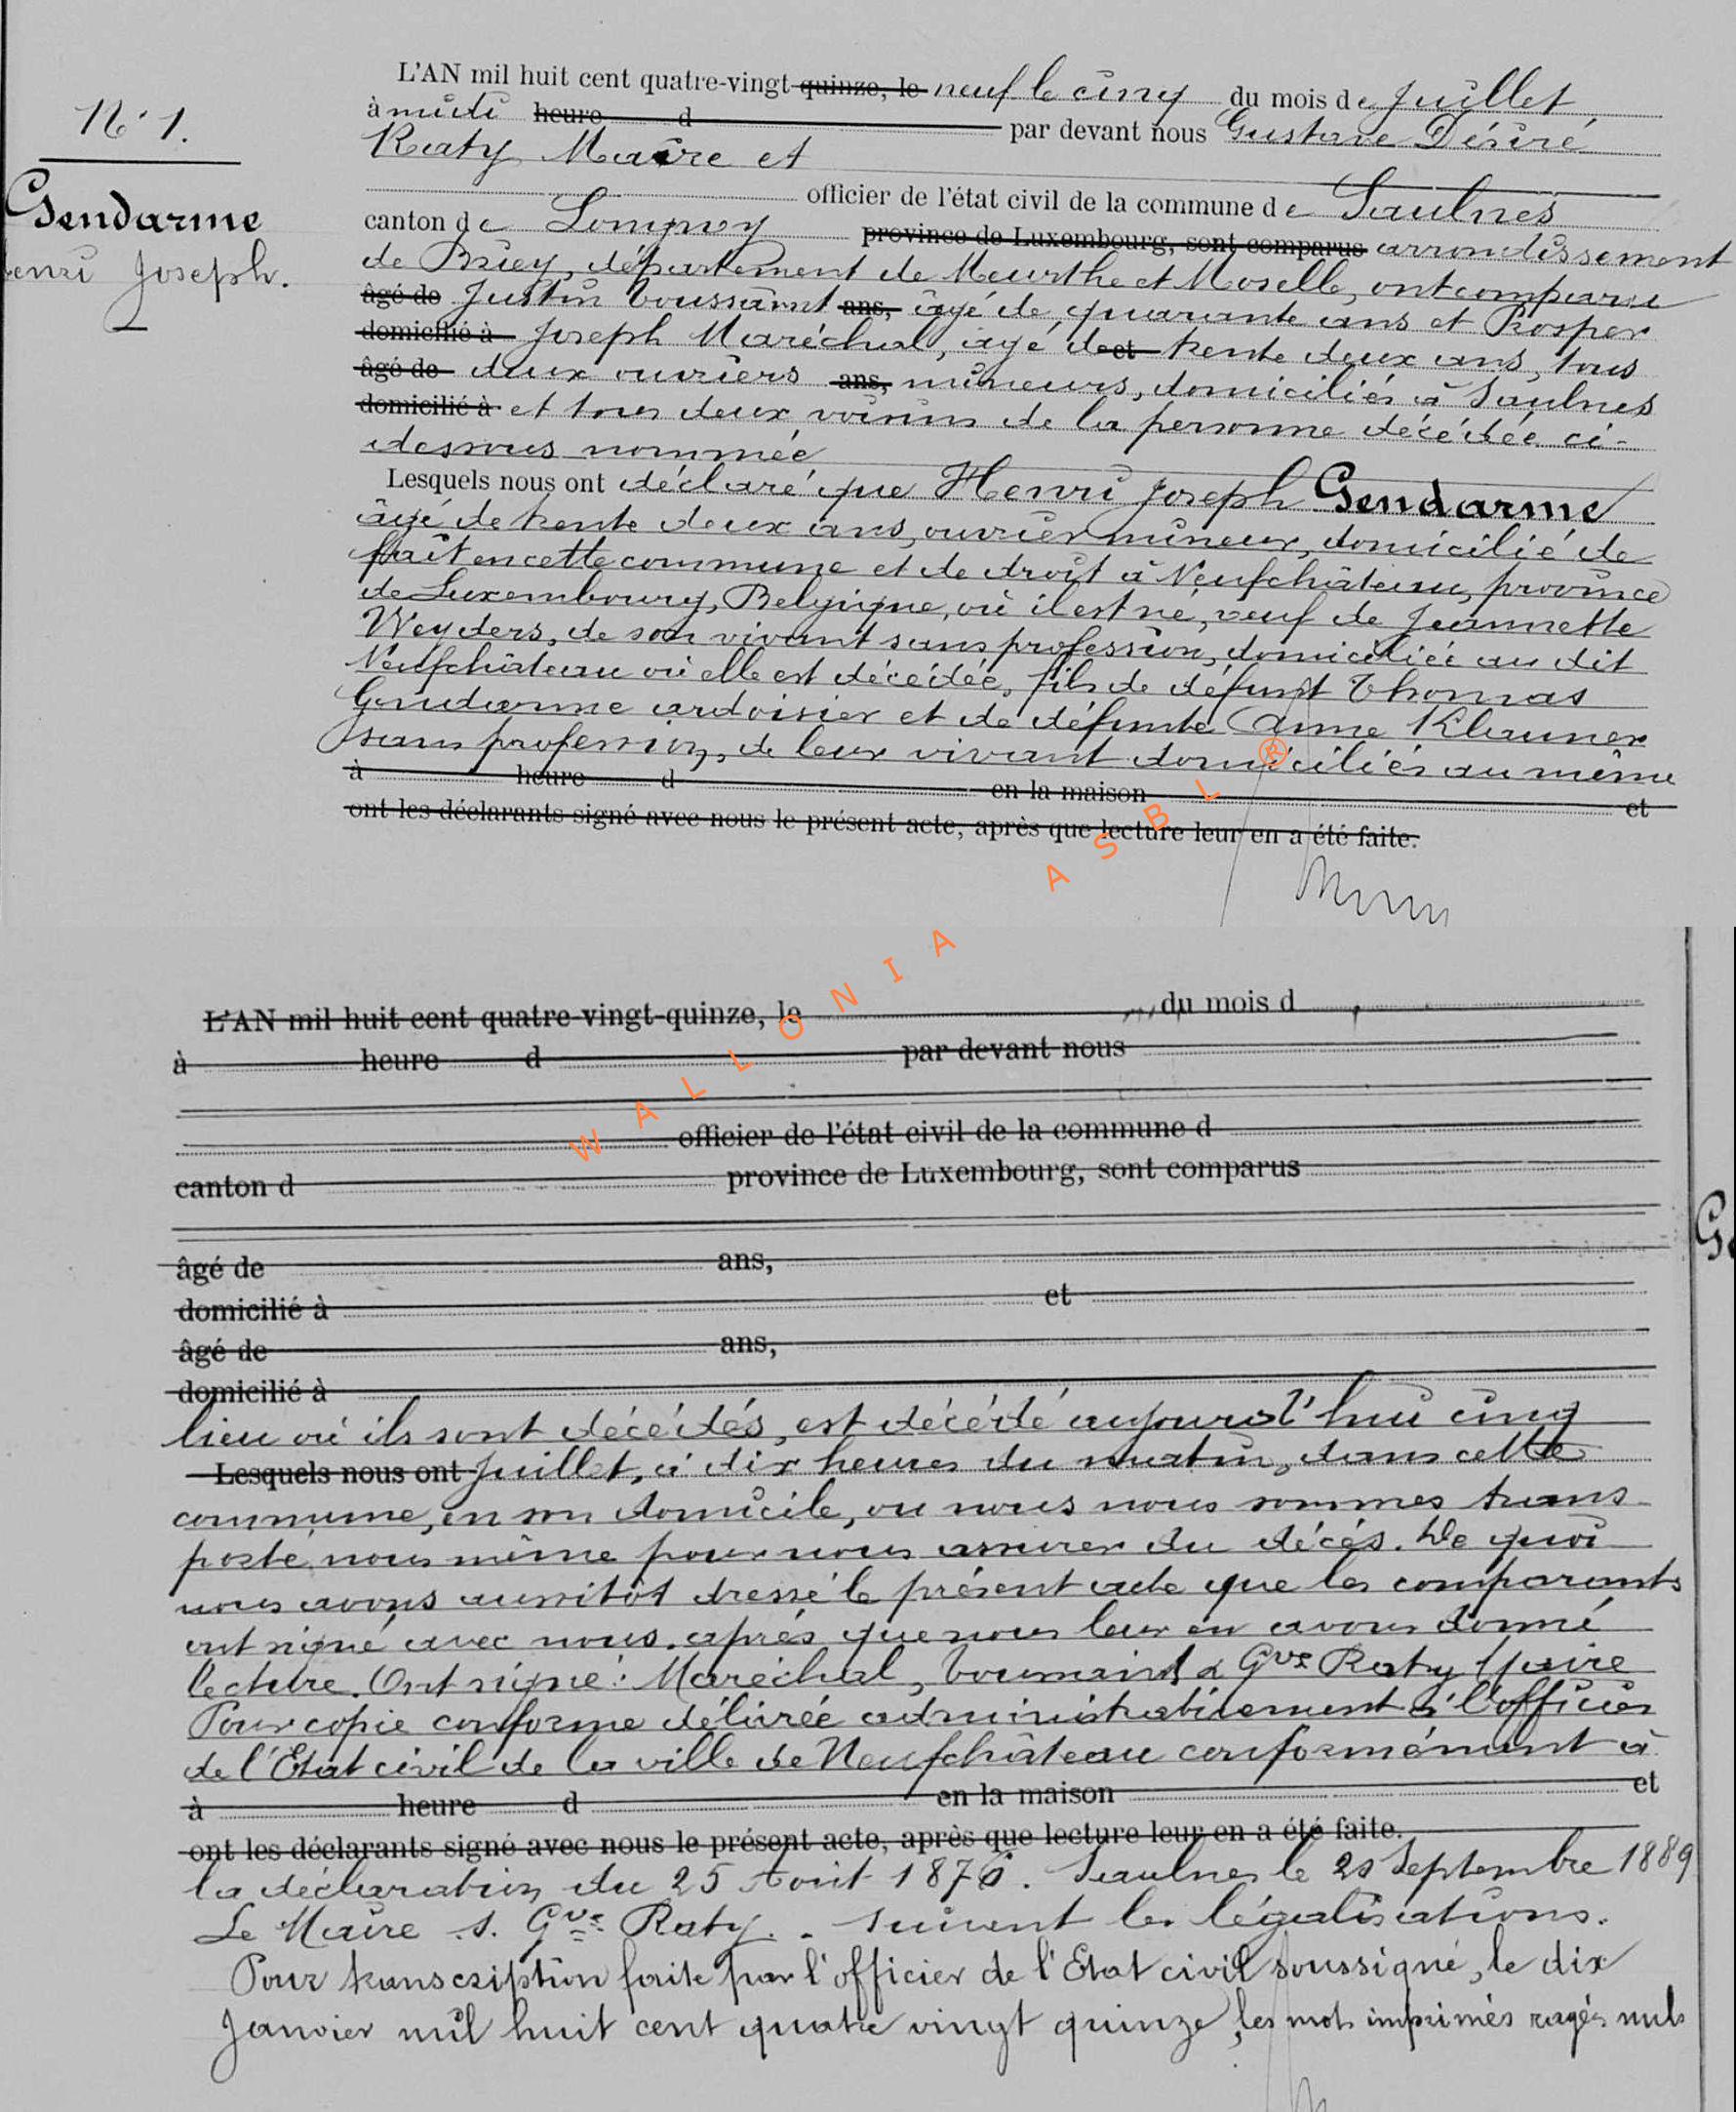 N° 1.
Gendarme
Henri Joseph.
L'AN mil huit cent quatre-vingt quinze, le neuf le cinq du mois de Juillet
à midi heure d par devant nous Gustave Désiré
Raty Maire et
officier de l'état civil de la commune de Saulnes
canton de Longwy province de Luxembourg, sont comparus arrondissement
de Briey, département de Meurthe et Moselle, ont comparu
âgé de Justin Toussaint ans, âgé de quarante ans et Prosper
domicilié à Joseph Maréchal, âgé de et trente deux ans, tous
âgé de deux ouvriers ans, mineurs, domiciliés à Saulnes
domicilié à et tous deux voisins de la personne décédée ci-
dessous nommée
Lesquels nous ont déclaré que Henri Joseph Gendarme
âgé de trente deux ans, ouvrier mineur, domicilié de
fait en cette commune et de droit à Neufchâteau, province
de Luxembourg, Belgique, où il est né, veuf de Jeannette
Weyders, de son vivant sans profession, domiciliée au dit
Neufchâteau où elle est décédée, fils de défunt Thomas
Gendarme ardoisier et de défunte Anne Klauner
sans profession, de leur vivant domiciliés au même
à heure d en la maison et
ont les déclarants signé avec nous le présent acte, après que lecture leur en a été faite.
WALLONIA ASBL ®
L'AN mil huit cent quatre-vingt-quinze, le du mois d
à heure d par devant nous
officier de l'état civil de la commune d
canton d province de Luxembourg, sont comparus
âgé de ans,
domicilié à et
âgé de ans,
domicilié à
lieu où ils sont décédés, est décédé aujourd'hui cinq
Lesquels nous ont Juillet, à dix heures du matin, dans cette
commune, en son domicile, ou nous nous sommes trans-
porté nous même pour nous assurer du décés. De quoi
nous avons aussitôt dressé le présent acte que les comparants
ont signé avec nous. après que nous leur en avons donné
lecture. Ont signé: Maréchal, Toussaint & Gve Raty Maire
Pour copie conforme délivrée administrativement à l'officier
de l'Etat civil de la ville de Neufchâteau conformément à
à heure d en la maison et
ont les déclarants signé avec nous le présent acte, après que lecture leur en a été faite.
la déclaration du 25 Août 1876. Saulnes le 20 Septembre 1889
Le Maire s. Gve Raty. - suivent les légalisations.
Pour transcription faite par l'officier de l'Etat civil soussigné, le dix
Janvier mil huit cent quatre vingt quinze, les mots imprimés rayés nuls